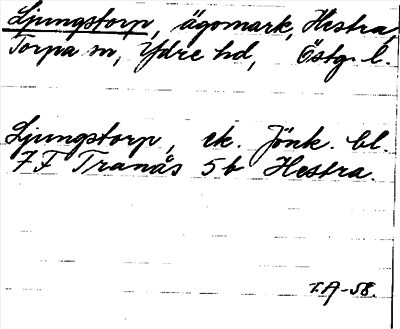 Ljungstorp, ägomark, Hestra,
Torpa sn, Ydre hd, Östg. l.
Ljungstorp, ek. Jönk. bl.
7F Tranås 5b Hestra.
T.A-58.